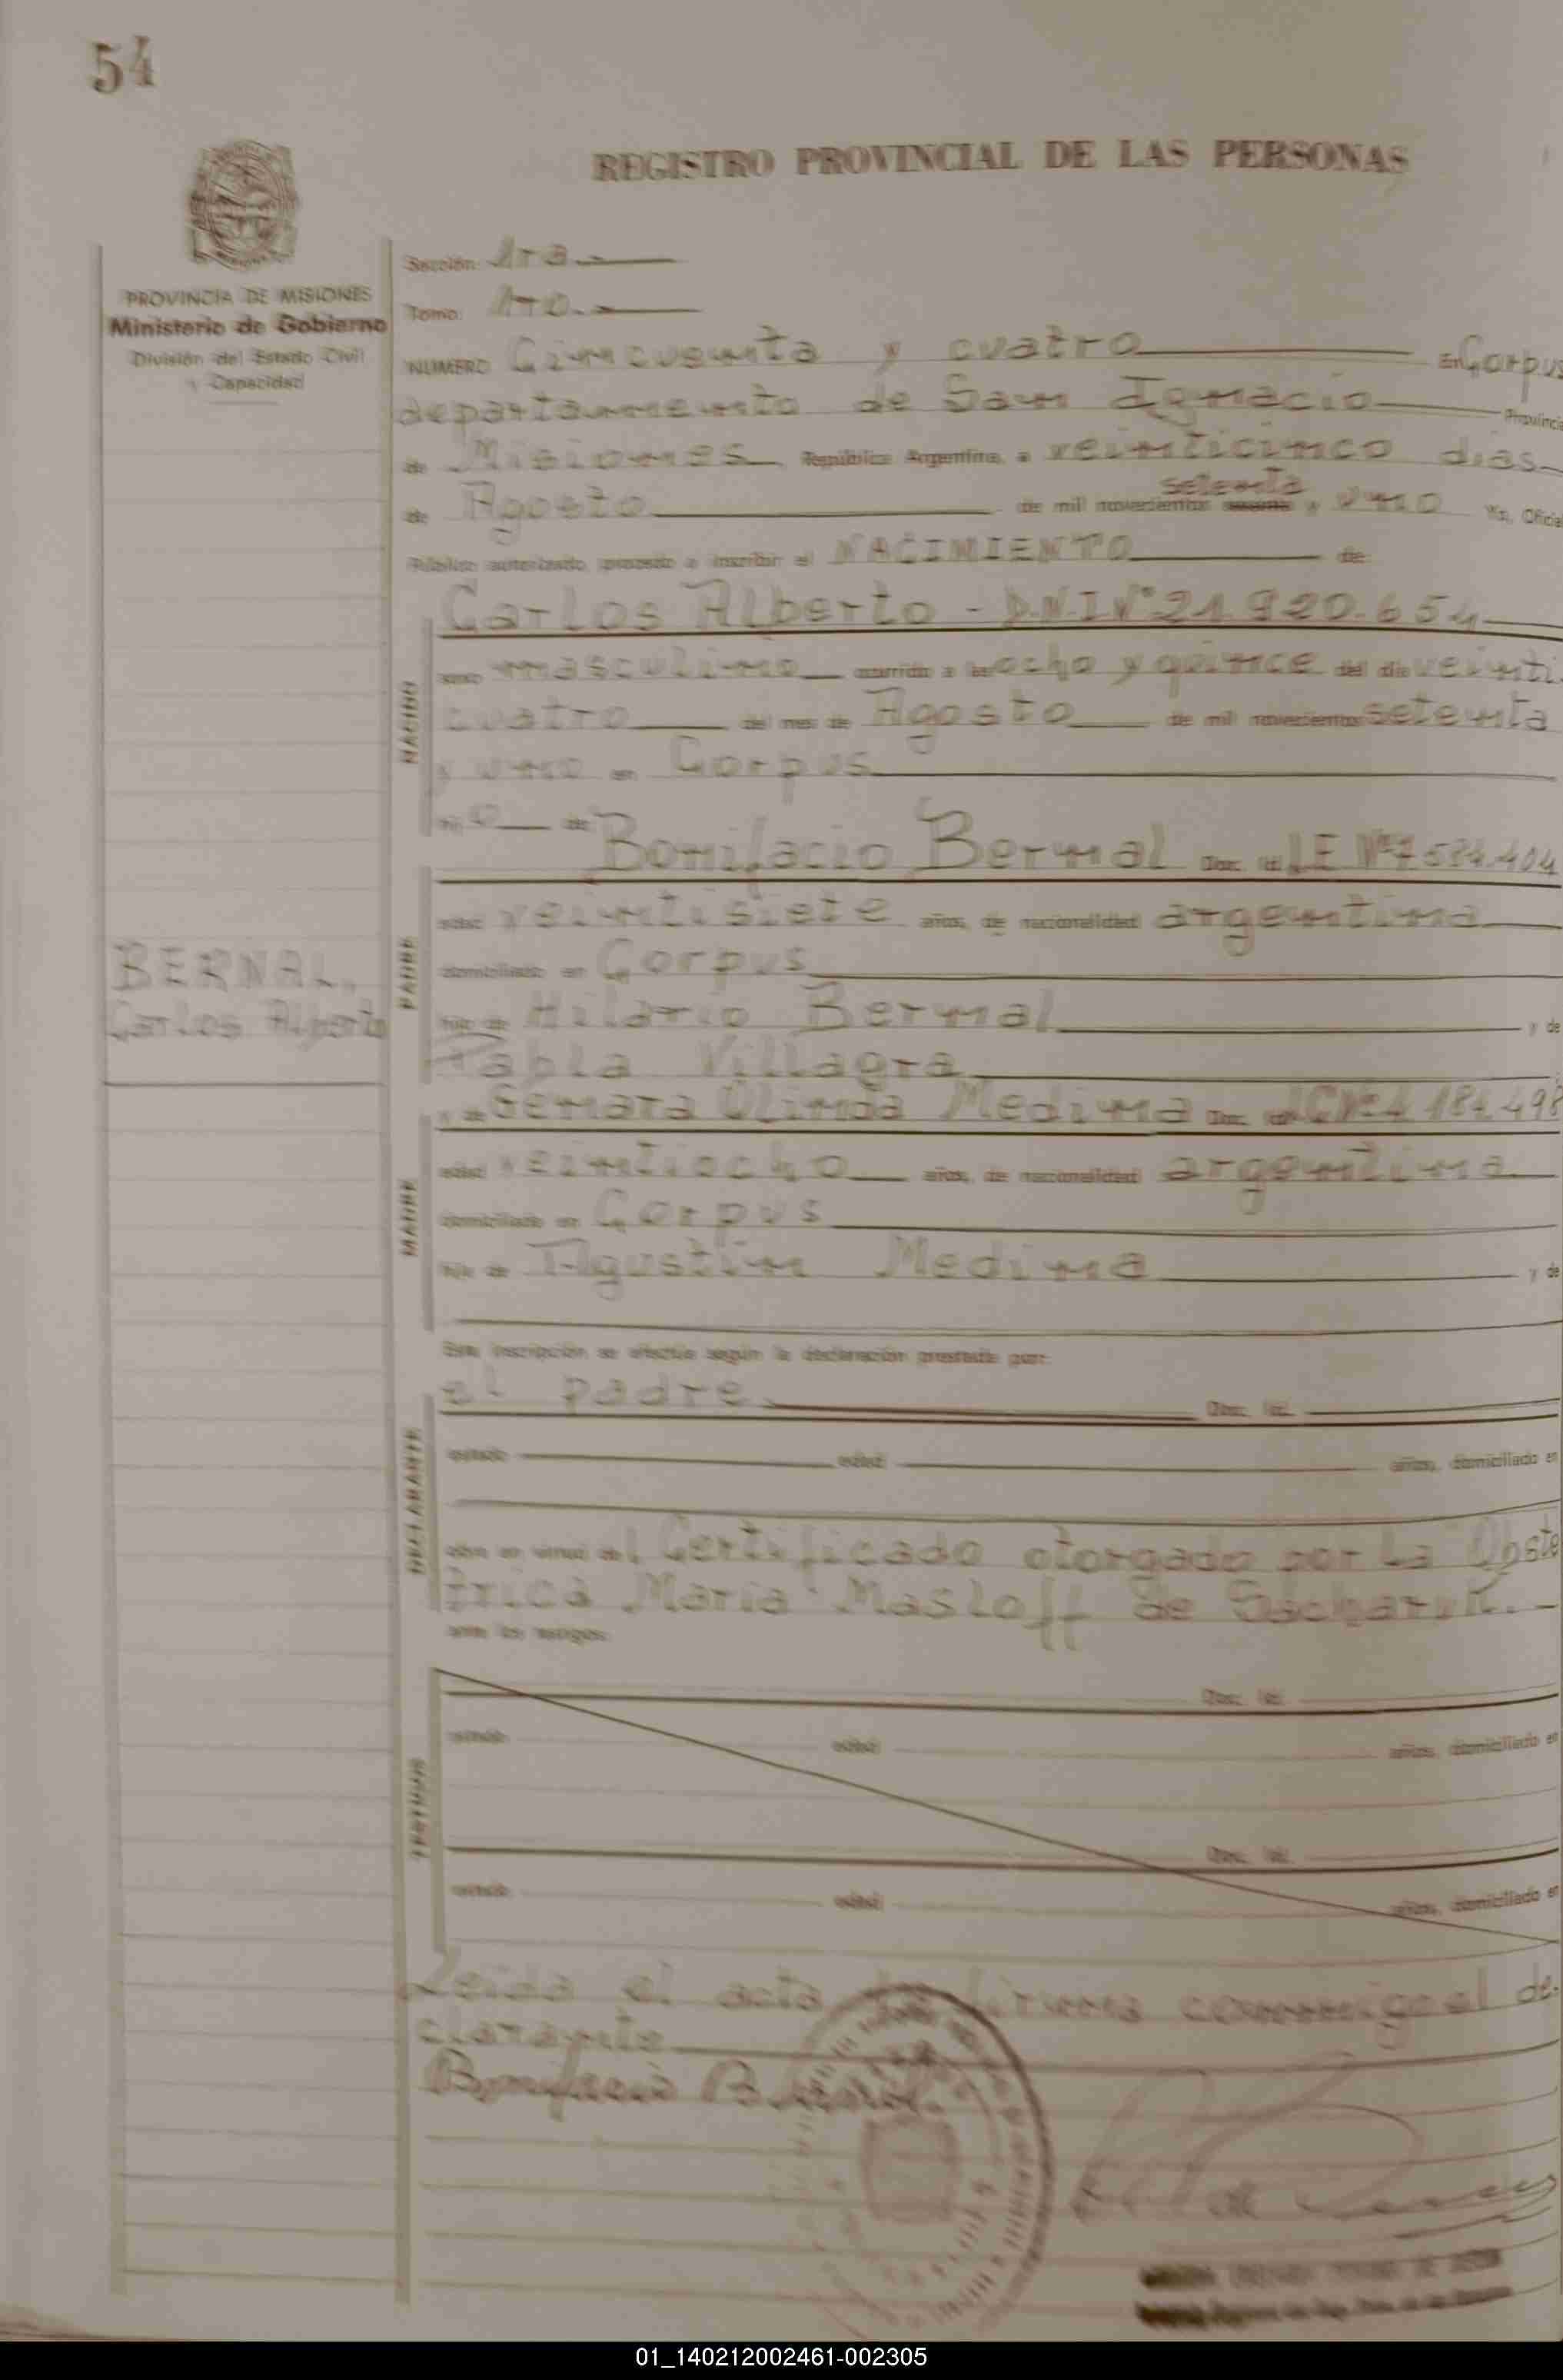 54
REGISTRO PROVINCIAL DE LAS PERSONAS
PROVINCIA DE MISIONES
Ministerio de Gobierno
División del Estado Civil
y Capacidad
Sección: 1ra.
Tomo: 1ro.
NUMERO Cincuenta y cuatro En Corpus
departamento de San Ignacio Provincia
de Misiones, República Argentina, a veinticinco dias
de Agosto de mil novecientos setenta y uno Yo, Oficial
Público autorizado procedo a inscribir el NACIMIENTO de:
NACIDO
Carlos Alberto - D.N.I Nº 21.920.654
sexo masculino ocurrido a las ocho y quince del día veinti
cuatro del mes de Agosto de mil novecientos setenta
y uno en Corpus
hijo de
PADRE
Bonifacio Bernal Doc. Id. L.E Nº 7.584.404
edad veintisiete años, de nacionalidad argentina
domiciliado en Corpus
hijo de Hilario Bernal y de
Villagra
BERNAL,
Carlos Alberto
MADRE
y de Olinda Medina Doc. Id.
edad veintiocho años, de nacionalidad argentina
domiciliada en Corpus
hija de Agustin Medina y de
Esta inscripción se efectúa según la declaración prestada por:
DECLARANTE
el padre. Doc. Id.
estado edad años, domiciliado en
obra en virtud del Certificado otorgado por La Obste
trica Maria Masloff de Sacharuk.-
ante los testigos:
TESTIGOS
Doc. Id.
estado edad años, domiciliado en
Doc. Id.
estado edad años, domiciliado en
Leida el acta la firma conmigo el de-
clarante
Bonifacio Bernal.
01_140212002461-002305